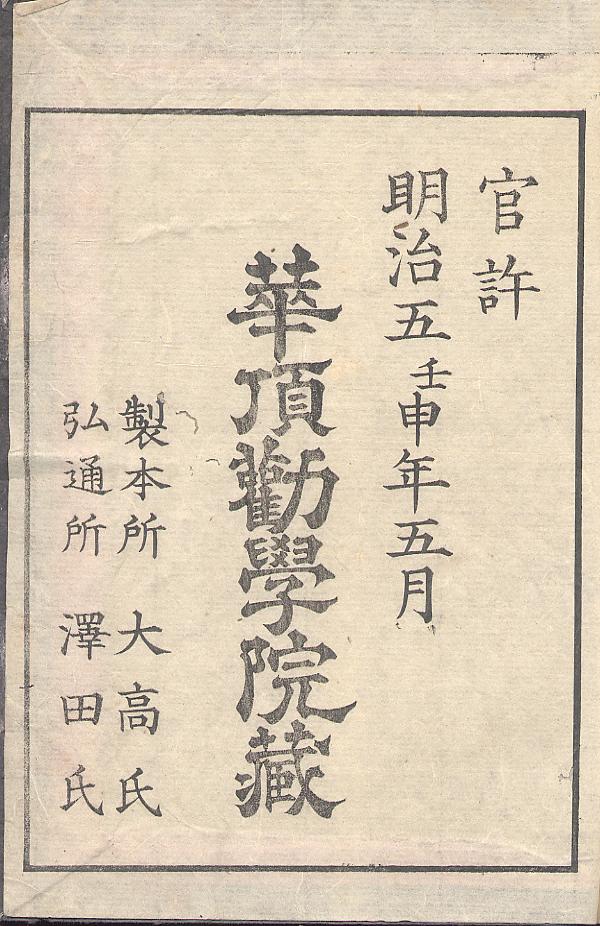 官許
明治五壬申年五月
華頂勸學院藏
製本所 大高氏
弘通所 澤田氏